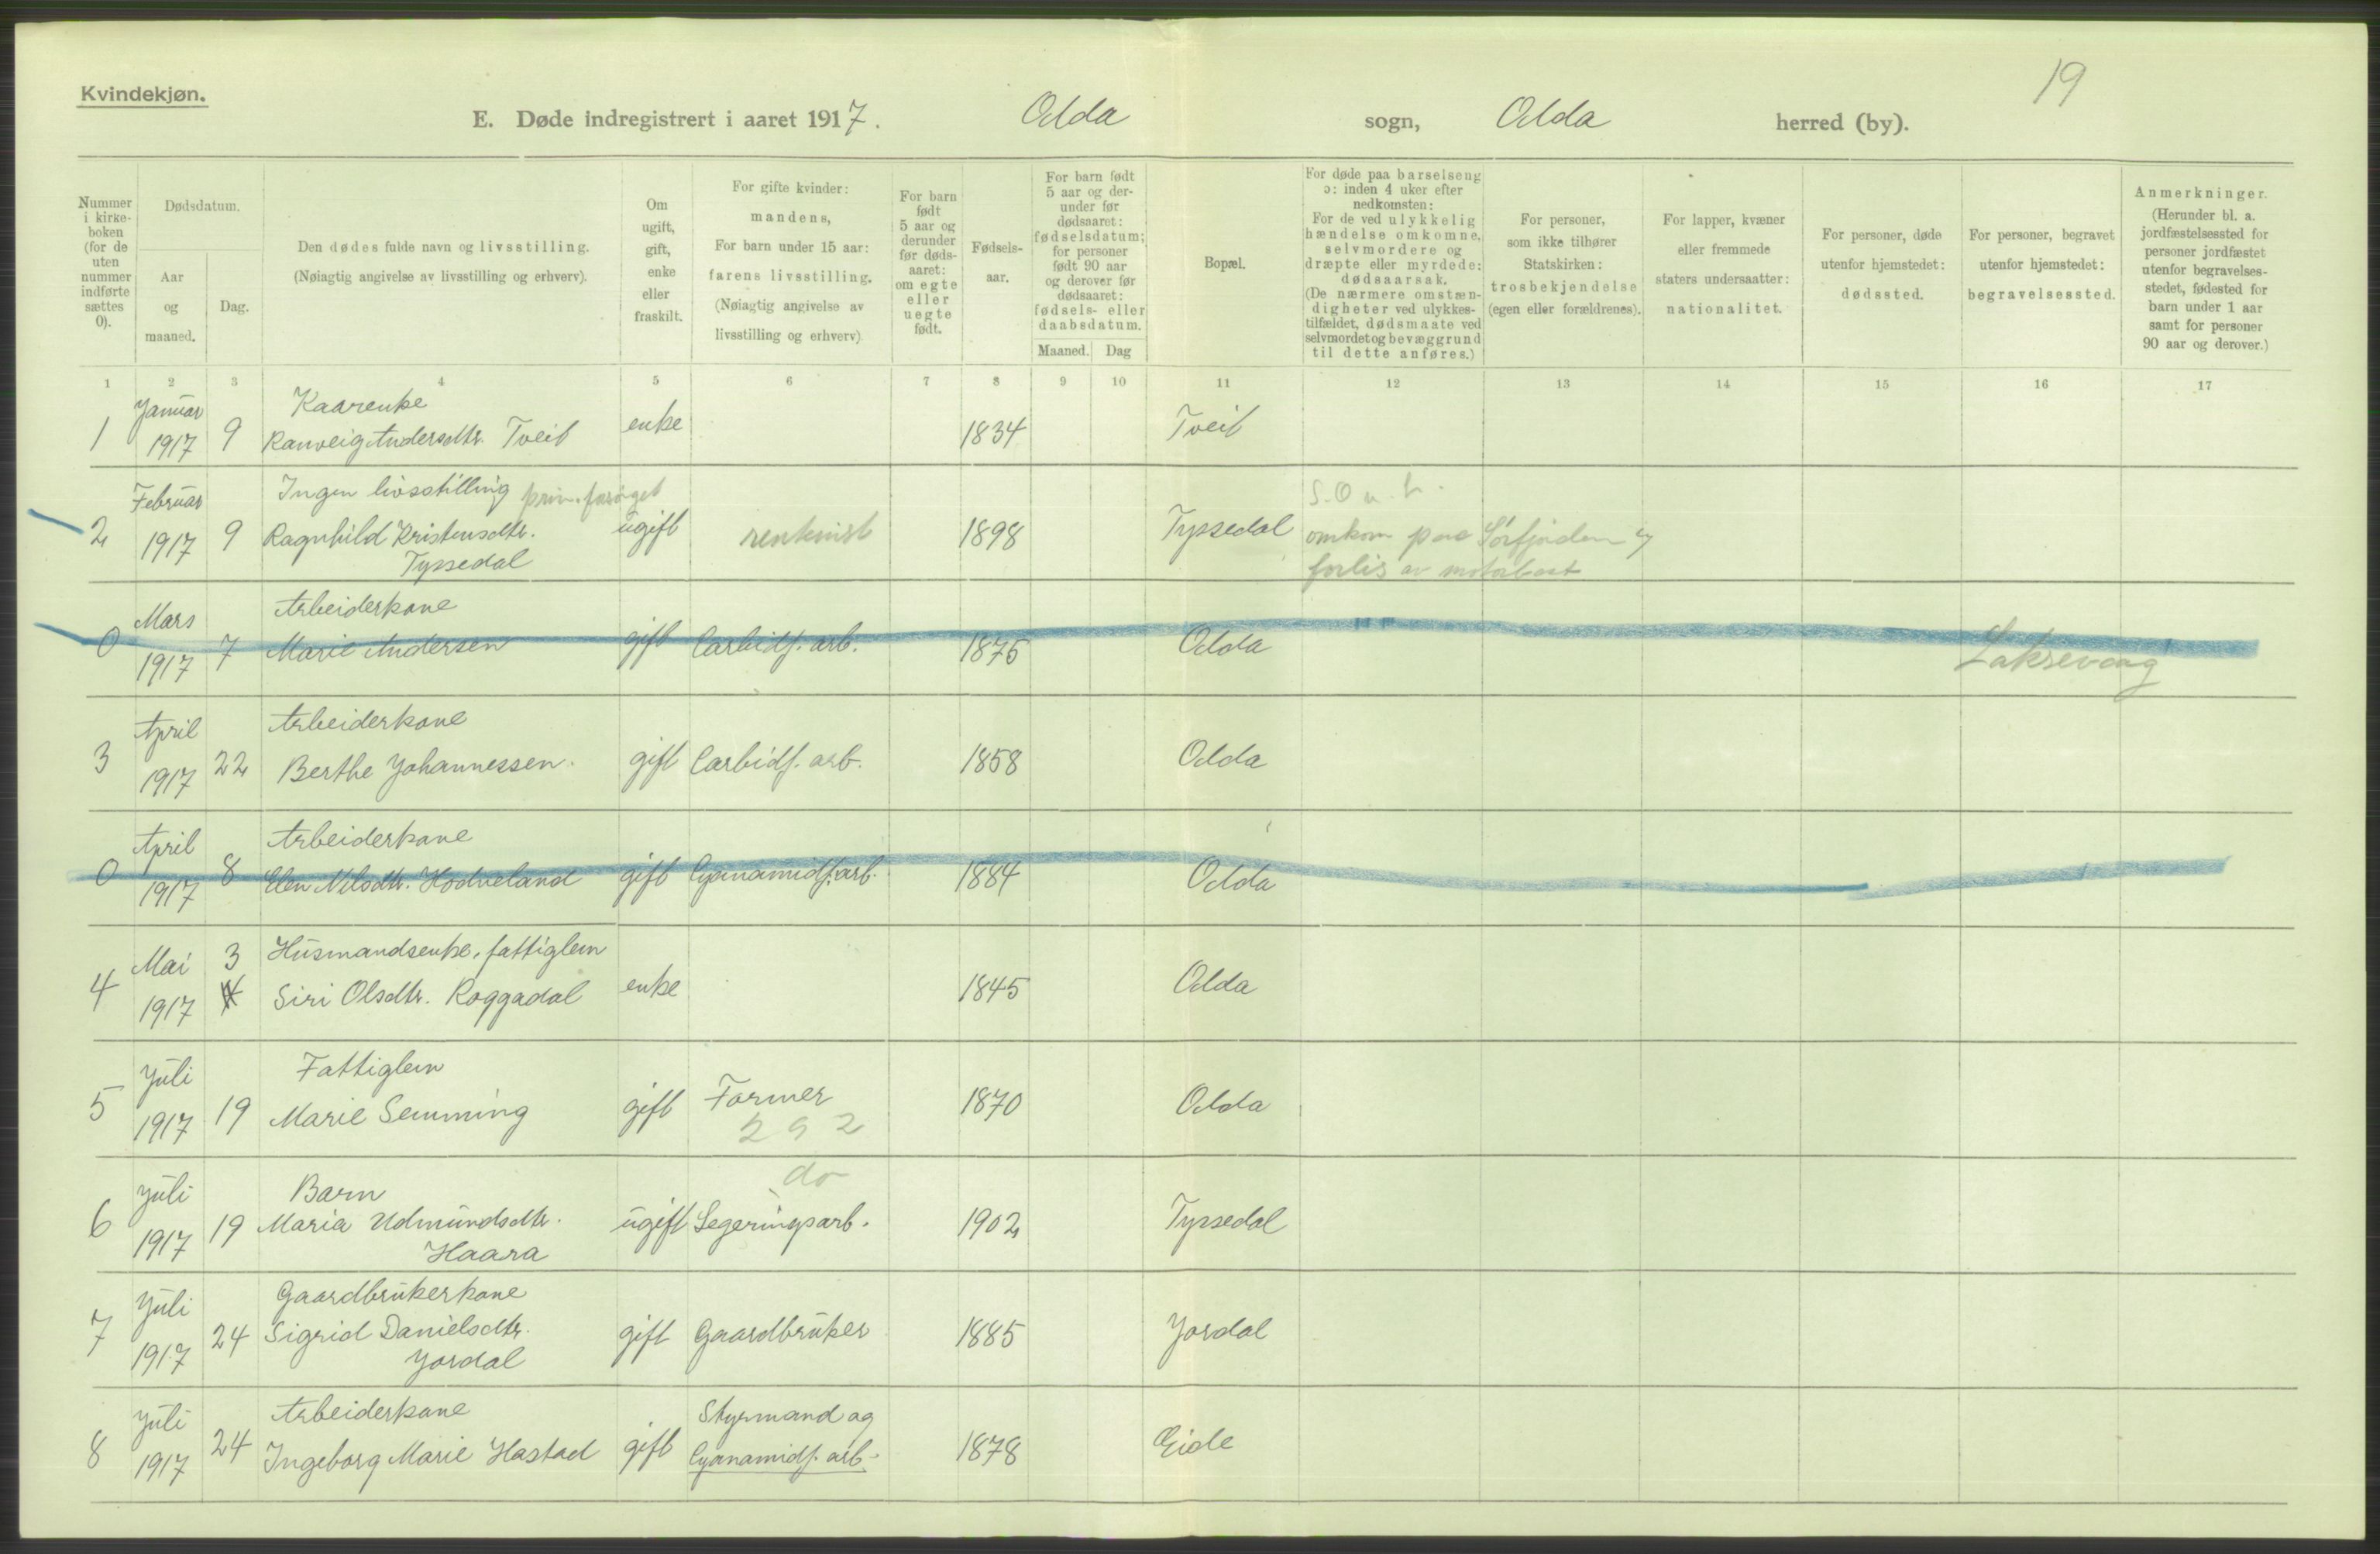 19
Kvindekjøn.
E. Døde indregistrert i aaret 1917. Odda sogn, Odda herred (by).
Nummer i kirke-boken (for de uten nummer indførte sættes 0).
Dødsdatum.
Aar og maaned.
Dag.
Den dødes fulde navn og livsstilling.
(Nøiagtig angivelse av livsstilling og erhverv).
Om ugift, gift, enke eller fraskilt.
For gifte kvinder: mandens,
For barn under 15 aar: farens livsstilling.
(Nøiagtig angivelse av livsstilling og erhverv).
For barn født 5 aar og derunder før døds-aaret: om egte eller uegte født.
Fødsels-aar.
For barn født 5 aar og der-under før dødsaaret: fødselsdatum; for personer født 90 aar og derover før dødsaaret: fødsels- eller daabsdatum.
Maaned. Dag
Bopæl.
For døde paa barselseng ɔ: inden 4 uker efter nedkomsten:
For de ved ulykkelig hændelse omkomne, selvmordere og dræpte eller myrdede: dødsaarsak.
(De nærmere omstæn-digheter ved ulykkes-tilfældet, dødsmaate ved selvmordet og bevæggrund til dette anføres.)
For personer, som ikke tilhører Statskirken: trosbekjendelse (egen eller forældrenes).
For lapper, kvæner eller fremmede staters undersaatter: nationalitet.
For personer, døde utenfor hjemstedet: dødssted.
For personer, begravet utenfor hjemstedet: begravelsessted.
Anmerkninger.
(Herunder bl. a. jordfæstelsessted for personer jordfæstet utenfor begravelses-stedet, fødested for barn under 1 aar samt for personer 90 aar og derover.)
1 2 3 4 5 6 7 8 9 10 11 12 13 14 15 16 17
Januar Kaarenke
1 1917 9 Ranveig Andersdtr. Tveit enke 1834 Tveit
Februar Ingen livsstilling
2 1917 9 Ragnhild Kristensdtr. ugift 1898 Tyssedal omkom paa Sørfjorden
Tyssedal forlis av motorbaat
Mars Arbeiderkone
0 1917 7 Marie Andersen gift Carbidf. arb. 1875 Odda Laksevaag
April Arbeiderkone
3 1917 22 Berthe Johannessen. gift Carbidf. arb. 1858 Odda
April Arbeiderkone
0 1917 8 Elen Nilsdtr. Hodneland gift Cyanamidf. arb. 1884 Odda
Mai 3 Husmandsenke, fattiglem
4 1917 4 Siri Olsdtr. Roggadal enke 1845 Odda
Juli Fattiglem
5 1917 19 Marie Semming gift Former 1870 Odda
292
Juli Barn do
6 1917 19 Maria Udmundsdtr. ugift Legeringsarb. 1902 Tyssedal
Haara
Juli Gaardbrukerkone
7 1917 24 Sigrid Danielsdtr. gift Gaardbruker 1885 Jordal
Jordal
Juli Arbeiderkone Styrmand og
8 1917 24 Ingeborg Marie Hastad gift Cyanamidf. arb. 1878 Eide